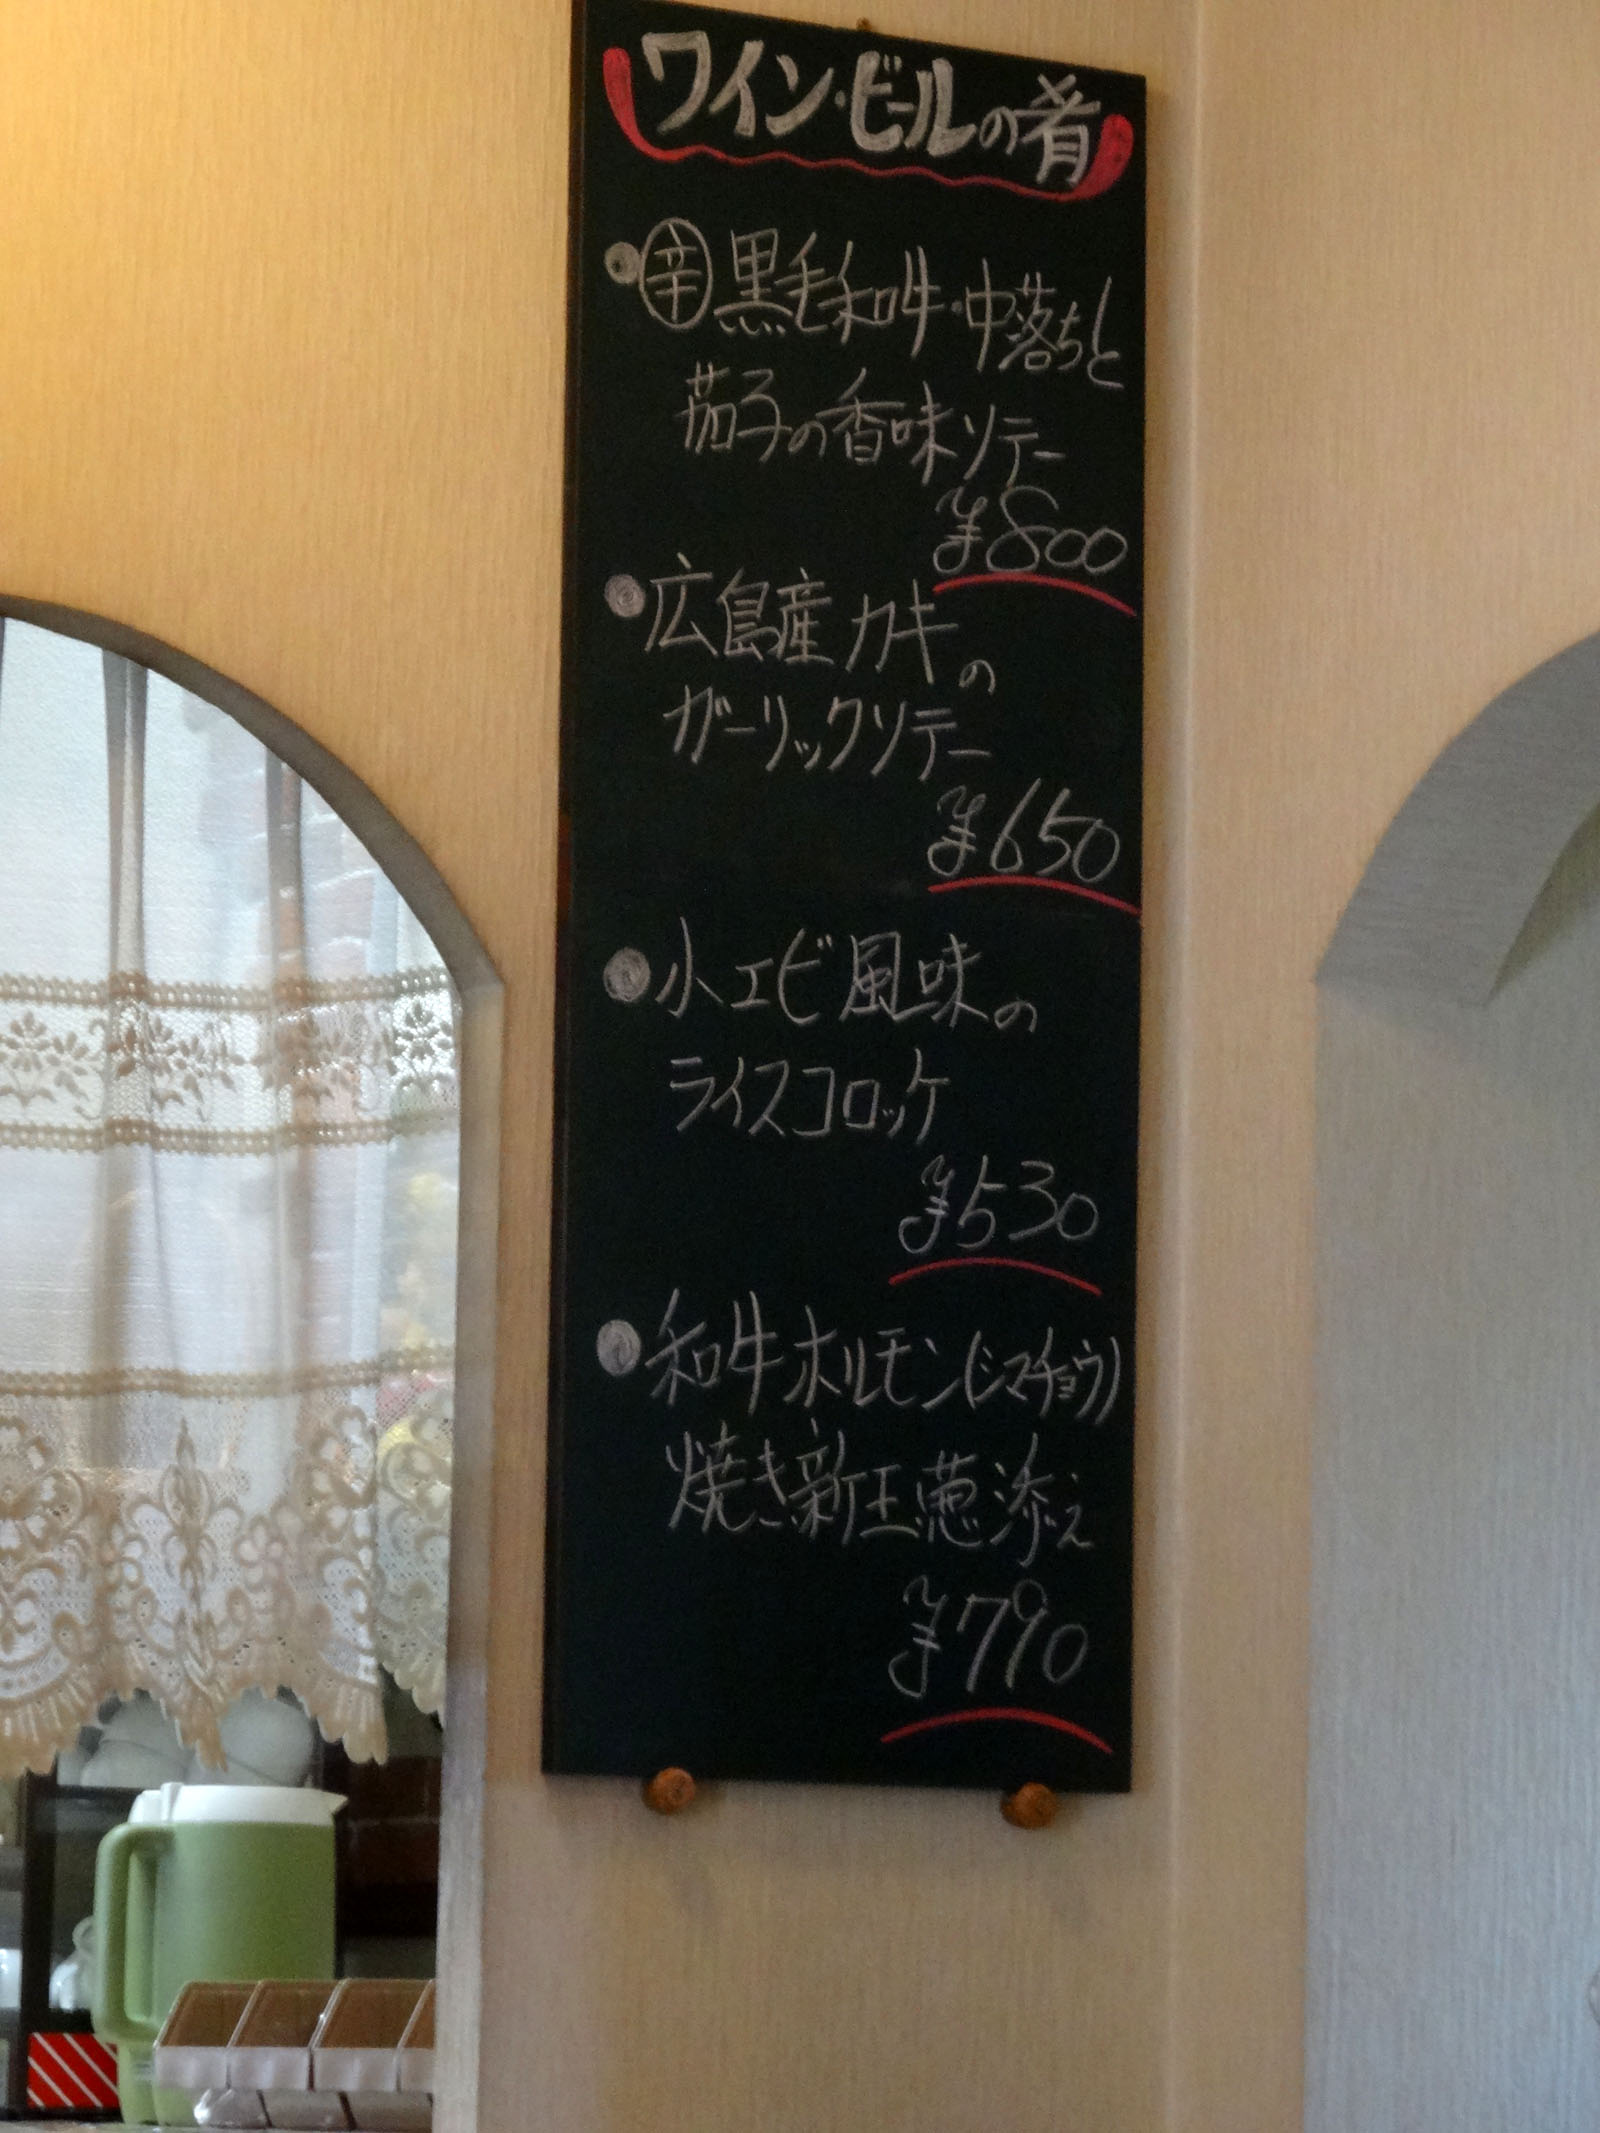 ワイン・ビールの肴
●㊛黒毛和牛・中落ちと
茄子の香味ソテー
¥800
●広島産カキの
ガーリックソテー
¥650
●小エビ風味の
ライスコロッケ
¥530
●和牛ホルモン(シマチョウ)
焼き新玉葱添え
¥790